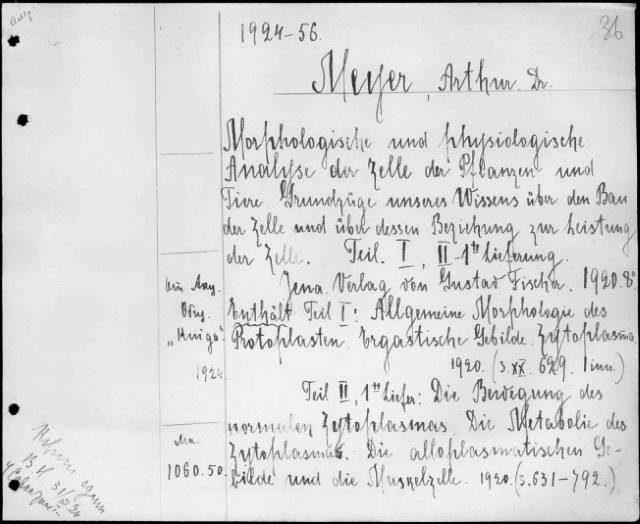 1924-56.
36
Meyer, Arthur. Dr.
Morphologische und physiologische
Analyse der Zelle der Pflanzen und
Tiere. Grundzüge unseres Wissens über den Bau
der Zelle und über dessen Beziehung zur Leistung
der Zelle. Teil. I, II-1te Lieferung.
Jena. Verlag von Gustav Fischer. 1920. 8°
Enthält Teil I: Allgemeine Morphologie des
Protoplasten. Ergastische Gebilde. Zytoplasma.
1920. (S. XX. 629. 1 inr.)
Teil II, 1te Liefer: Die Bewegung des
normalen Zytoplasmas. Die Metabolie des
Zytoplasmas. Die alloplasmatischen Ge-
bilde und die Muskelzelle. 1920. (S. 631-792.)
"Kniga"
1924
1060.50.